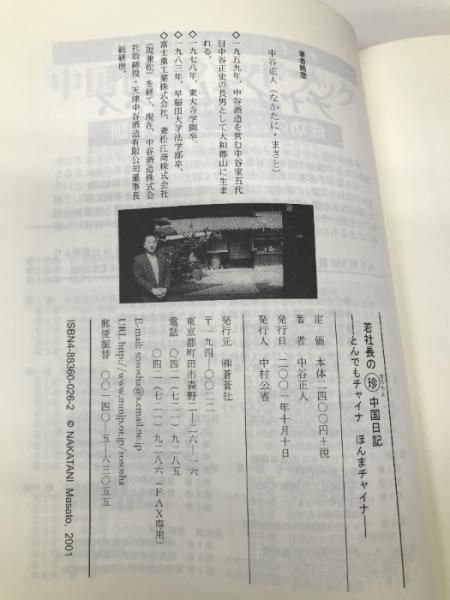 筆者略歴
中谷正人(なかたに・まさと)
◇一九五九年、中谷酒造を営む中谷家五代
目中谷正史の長男として大和郡山に生ま
れる。
◇一九七八年、東大寺学園卒。
◇一九八三年、早稲田大学法学部卒。
富士重工業株式会社、兼松江商株式会社
(現兼松)を経て、現在、中谷酒造株式会
社取締役・天津中谷酒造有限公司董事長
総経理。
若社長の㊥珍中国日記
―とんでもチャイナ ほんまチャイナ―
定 価 本体一四〇〇円+税
著 者 中谷正人
発行日 二〇〇一年十月十日
発行人 中村公省
発行元 ㈱蒼蒼社
〒一九四―〇〇二二
東京都町田市森野二―二六―一六
電話 〇四二(七二一)九二八五
〇四二(七二一)九二八六(FAX専用)
E-mail: sososha@s.email.ne.jp
URL http://www.mmjp.or.jp/sososha
郵便振替 〇〇一四〇・五・六三〇五五
ISBN4-88360-026-2 © NAKATANI Masato, 2001